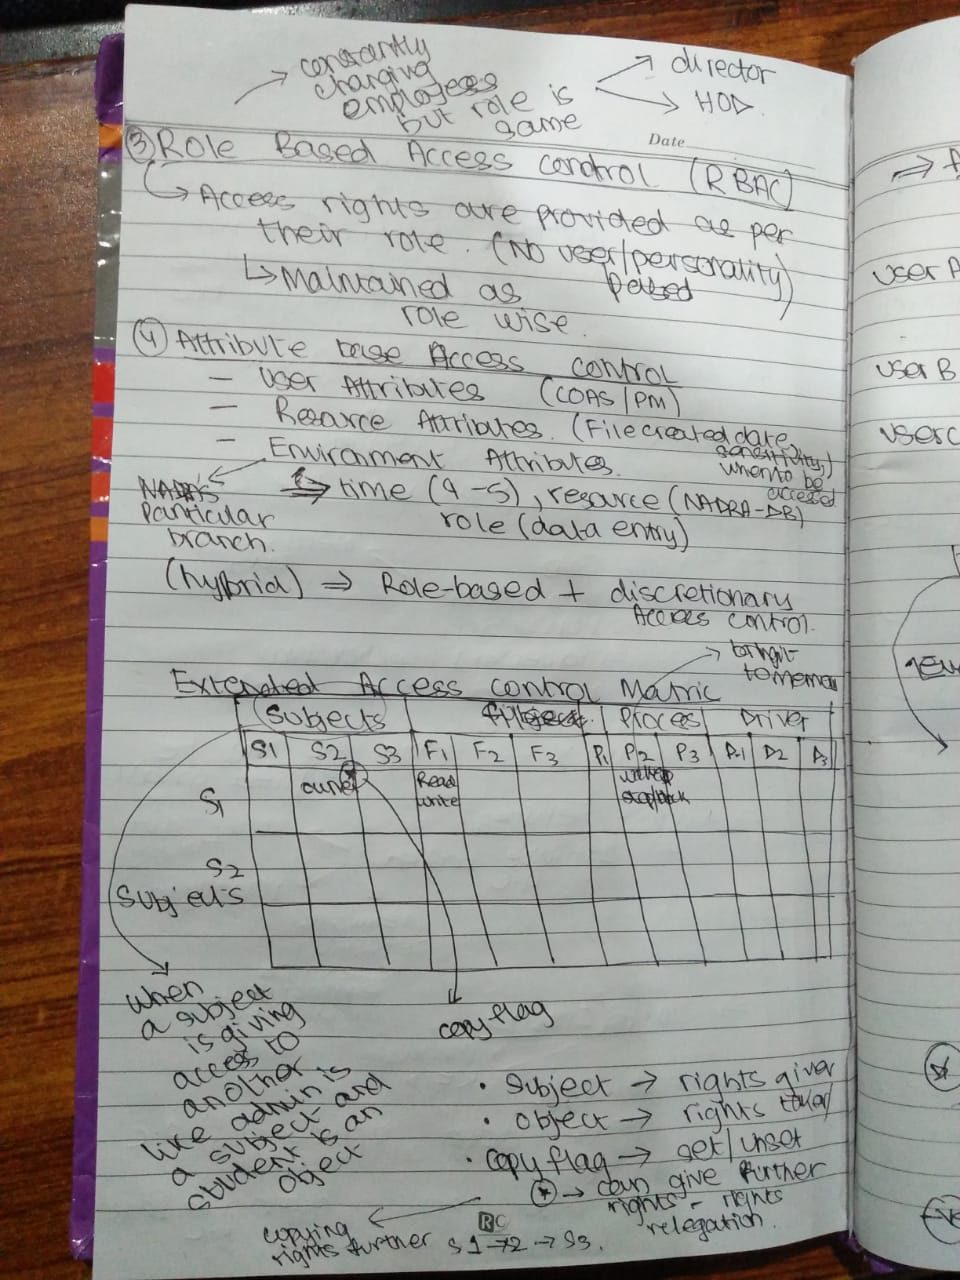 constantly
changing
employees
but role is
same
director
HOD
Date
③ Role Based Access control (RBAC)
Access rights are provided as per
their role. (No user/personality)
Maintained as
role wise.
④ Attribute base Access control
- User Attributes (COAS/PM)
- Resource Attributes. (File created date,
sensitivity,)
when to be
accessed
- Environment Attributes.
NADRA's
particular
branch.
⇒ time (9-5), resource (NADRA-DB)
role (data entry)
(hybrid) ⇒ Role-based + discretionary
Access control.
Extended Access control Matric
Subjects Process Driver
S1 S2 S3 F1 F2 F3 P1 P2 P3 D1 D2 D3
S1 owner* Read
write
S2
Subjects
when
a subject
is giving
access to
another
like admin is
a subject and
student is an
object
copy flag
· Subject → rights giver
· object → rights taker
· copy flag → set/unset
* → can give further
rights - rights
relegation.
copying
rights further
RC
user A
user B
user C